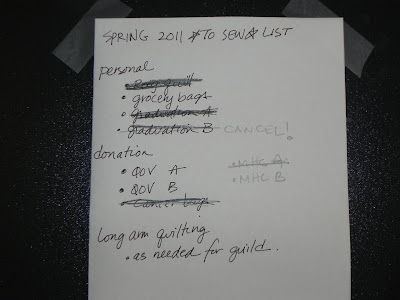 SPRING 2011 TO SEW LIST
personal
• baby quilt
• grocery bags
• graduation A
• graduation B CANCEL!
donation
• QOV A
• QOV B
• cancer bags
• MHC A
• MHC B
long arm quilting
• as needed for guild.